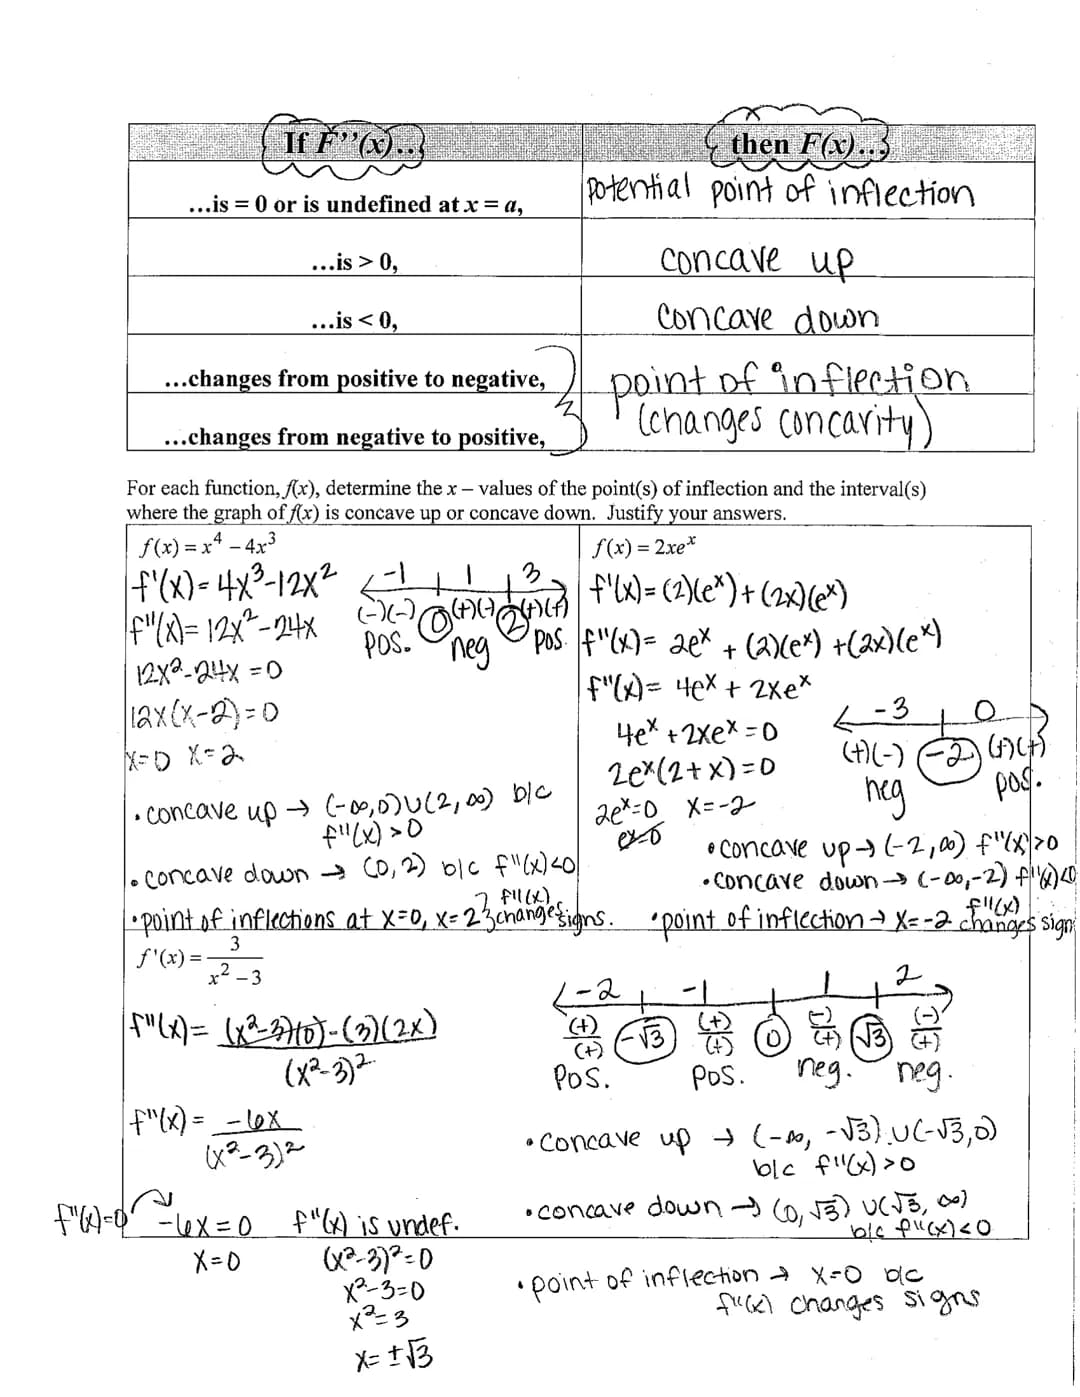 If F''(x)... then F(x)...
...is = 0 or is undefined at x = a, potential point of inflection
...is > 0, concave up
...is < 0, concave down
...changes from positive to negative, point of inflection
...changes from negative to positive, (changes concavity)
For each function, f(x), determine the x – values of the point(s) of inflection and the interval(s)
where the graph of f(x) is concave up or concave down. Justify your answers.
f(x) = x⁴ – 4x³
f'(x) = 4x³-12x²
f"(x) = 12x²-24x
12x²-24x = 0
12x(x-2) = 0
x=0 x=2
-1 1 3
(-)(-) 0 (+)(-) 2 (+)(+)
pos. neg pos.
• concave up → (-∞,0)∪(2,∞) b/c
f"(x) >0
• concave down → (0,2) b/c f"(x)<0
• point of inflections at x=0, x=2 } f"(x) changes signs.
f(x) = 2xeˣ
f'(x) = (2)(eˣ) + (2x)(eˣ)
f"(x) = 2eˣ + (2)(eˣ) + (2x)(eˣ)
f"(x) = 4eˣ + 2xeˣ
4eˣ + 2xeˣ = 0
2eˣ(2+x) = 0
2eˣ=0 x=-2
eˣ=0
-3 0
(+)(-) -2 (+)(+)
neg pos.
• concave up → (-2,∞) f"(x)>0
• concave down → (-∞,-2) f"(x)<0
• point of inflection → x=-2 f"(x) changes sign
f'(x) = 3/(x² – 3)
f"(x) = (x²-3)(0)-(3)(2x)
(x²-3)²
f"(x) = -6x
(x²-3)²
f"(x)=0 -6x = 0
x=0
f"(x) is undef.
(x²-3)²=0
x²-3=0
x²=3
x= ±√3
-2 -1 1 2
(+)/(+) -√3 (+)/(+) 0 (-)/(+) √3 (-)/(+)
pos. pos. neg. neg.
• concave up → (-∞, -√3) ∪ (-√3, 0)
b/c f"(x) >0
• concave down → (0, √3) ∪ (√3, ∞)
b/c f"(x)<0
• point of inflection → x=0 b/c
f"(x) changes signs